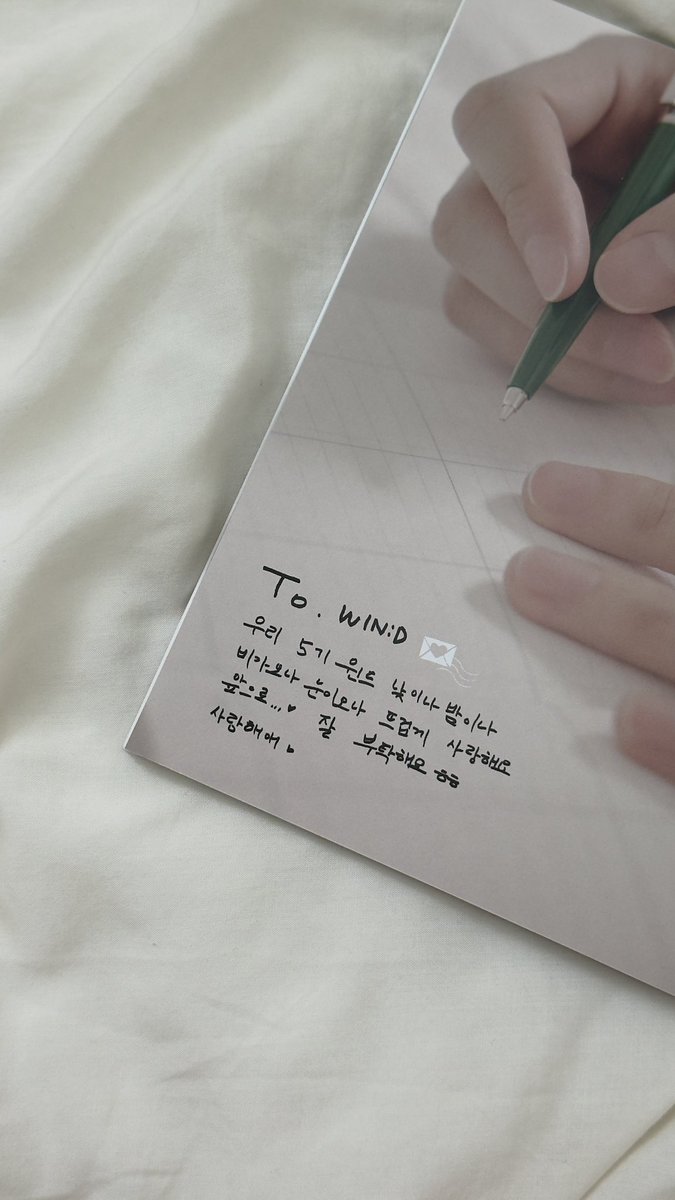 To. WIN:D
우리 5기 윈드 낮이나 밤이나
비가오나 눈이오나 뜨겁게 사랑해요
앞으로...♥ 잘 부탁해요 ㅎㅎ
사랑해애♥